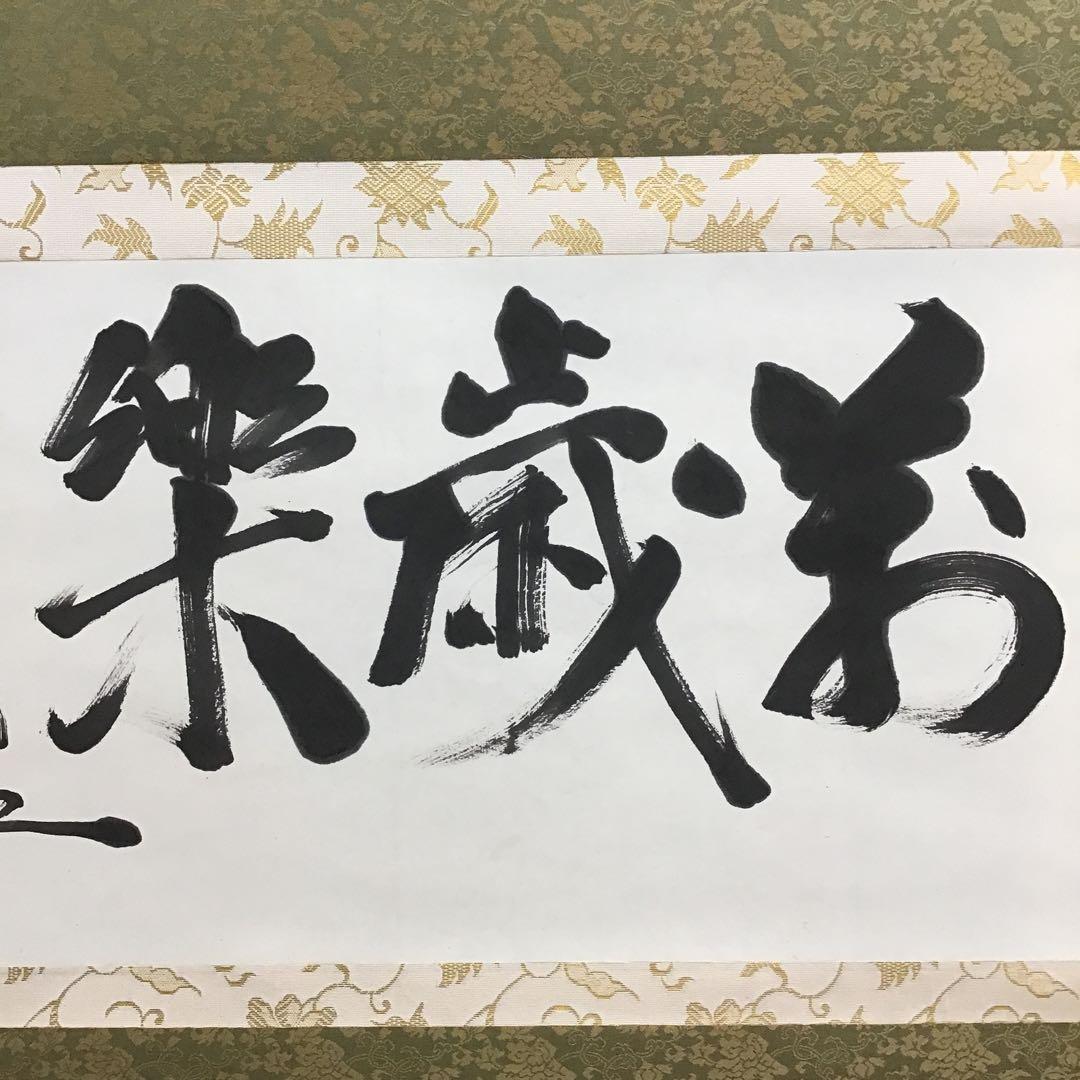 萬歳樂